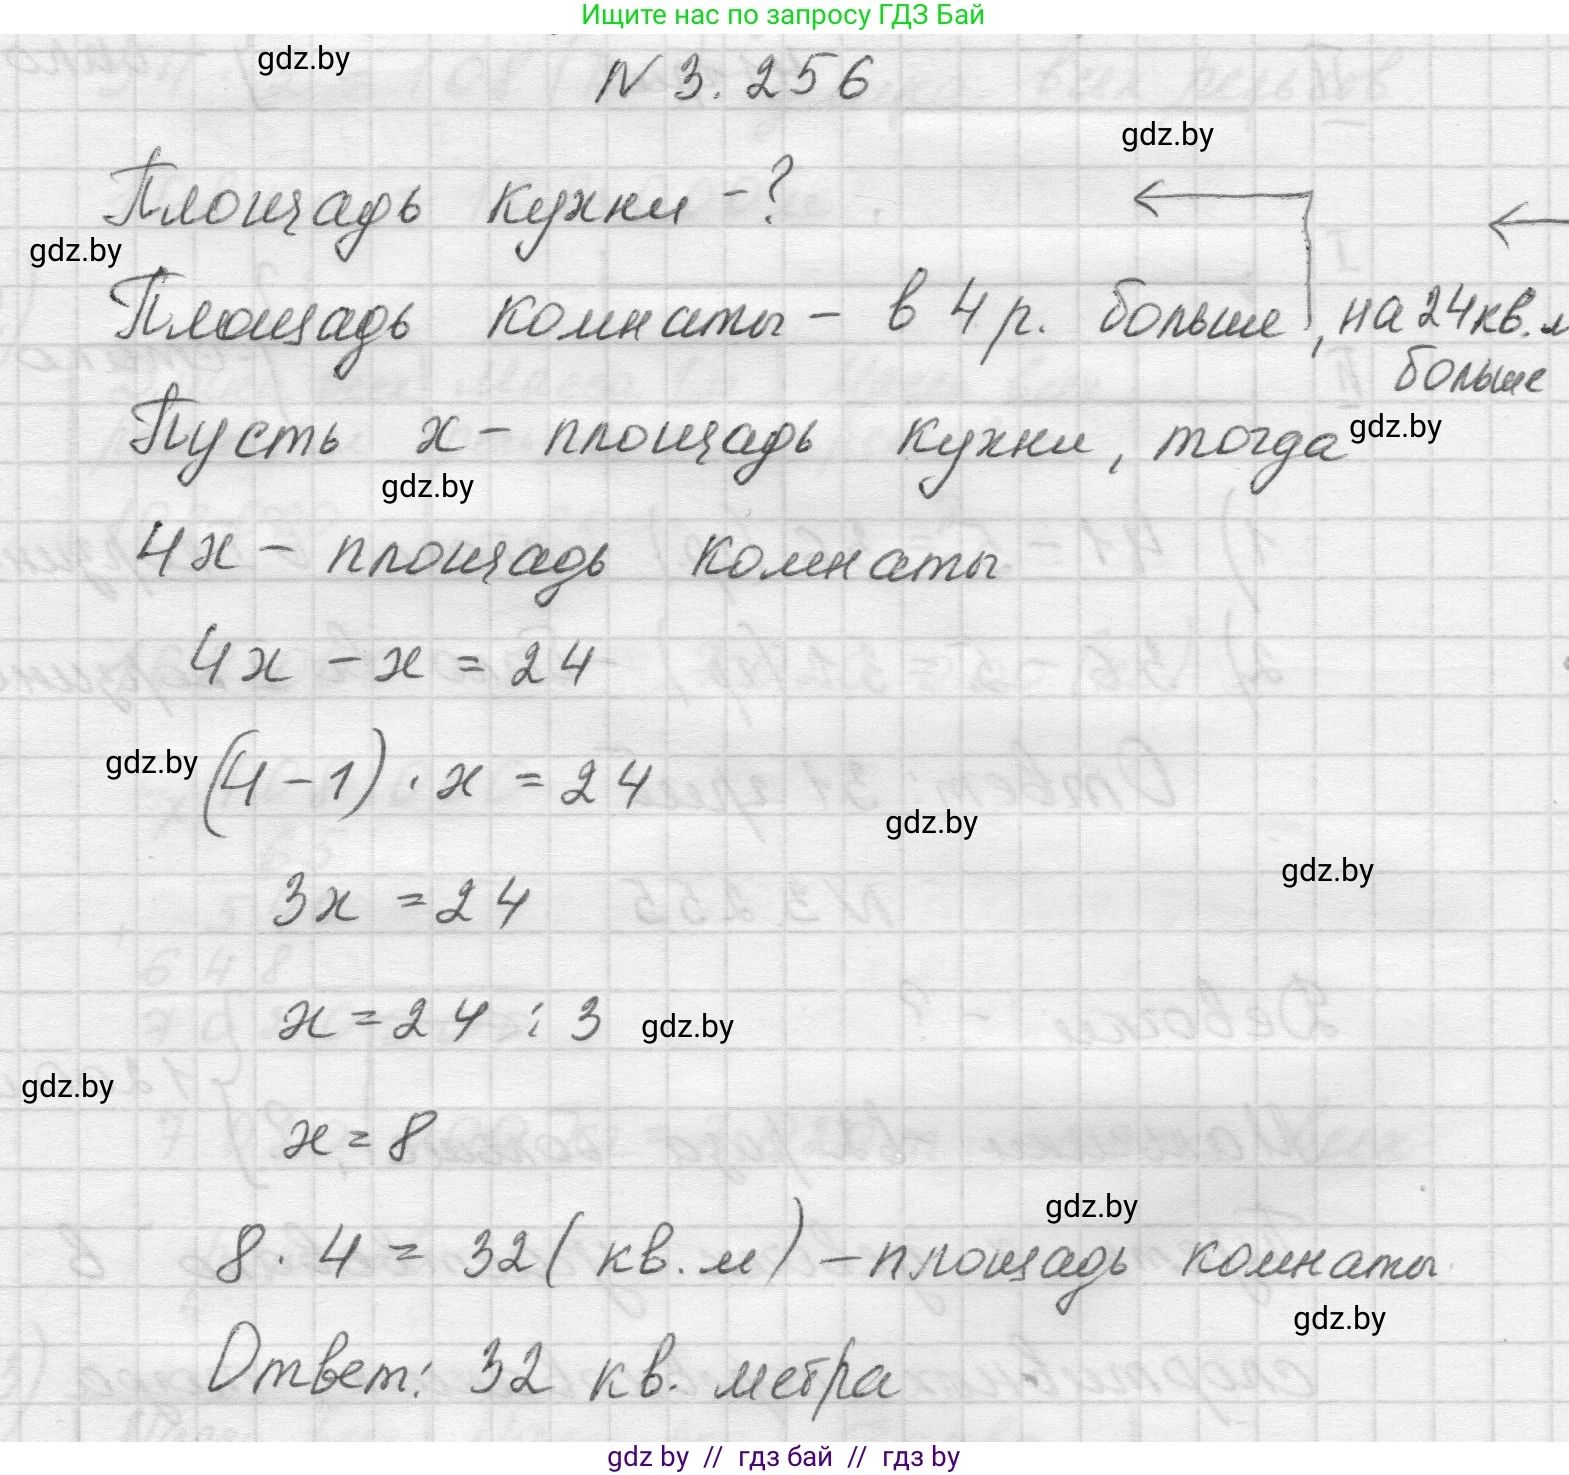 Ищите нас по запросу ГДЗ Бай
gdz.by
N 3.256
gdz.by
Площадь кухни - ?
gdz.by
Площадь комнаты - в 4 р. больше, на 24 кв. м
больше
Пусть x - площадь кухни, тогда
gdz.by
gdz.by
4x - площадь комнаты
4x - x = 24
gdz.by
(4 - 1) · x = 24
gdz.by
gdz.by
3x = 24
x = 24 : 3
gdz.by
gdz.by
x = 8
gdz.by
8 · 4 = 32 (кв. м) - площадь комнаты
gdz.by
Ответ: 32 кв. метра
gdz by // гдз бай // гдз by